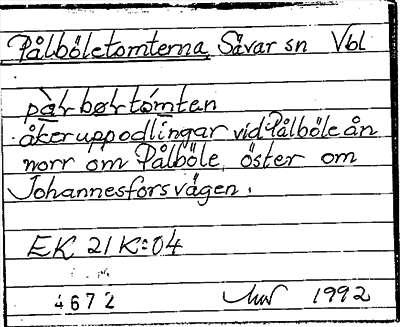 Pålböletomterna Sävar sn Vbl
åkeruppodlingar vid Pålböle ån
norr om Pålböle, öster om
Johannesforsvägen.
EK 21K:04
4672 1992